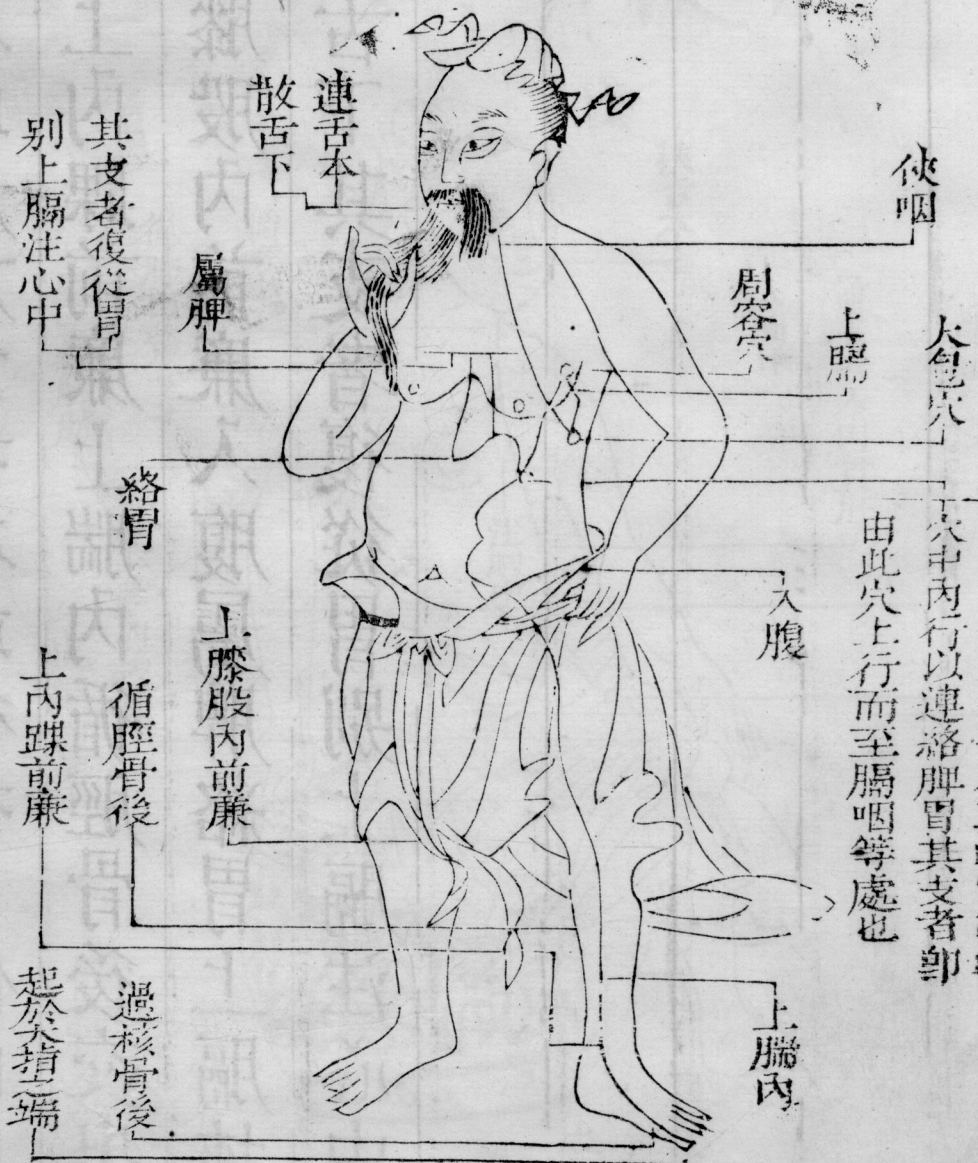 俠咽
大包穴
上膈
周容穴
穴中內行以連絡脾胃其支者卽
由此穴上行而至膈咽等處也
入腹
上腨內
連舌本
散舌下
屬脾
其支者復從胃
別上膈注心中
絡胃
上膝股內前廉
循脛骨後
上內踝前廉
過核骨後
起於大指之端